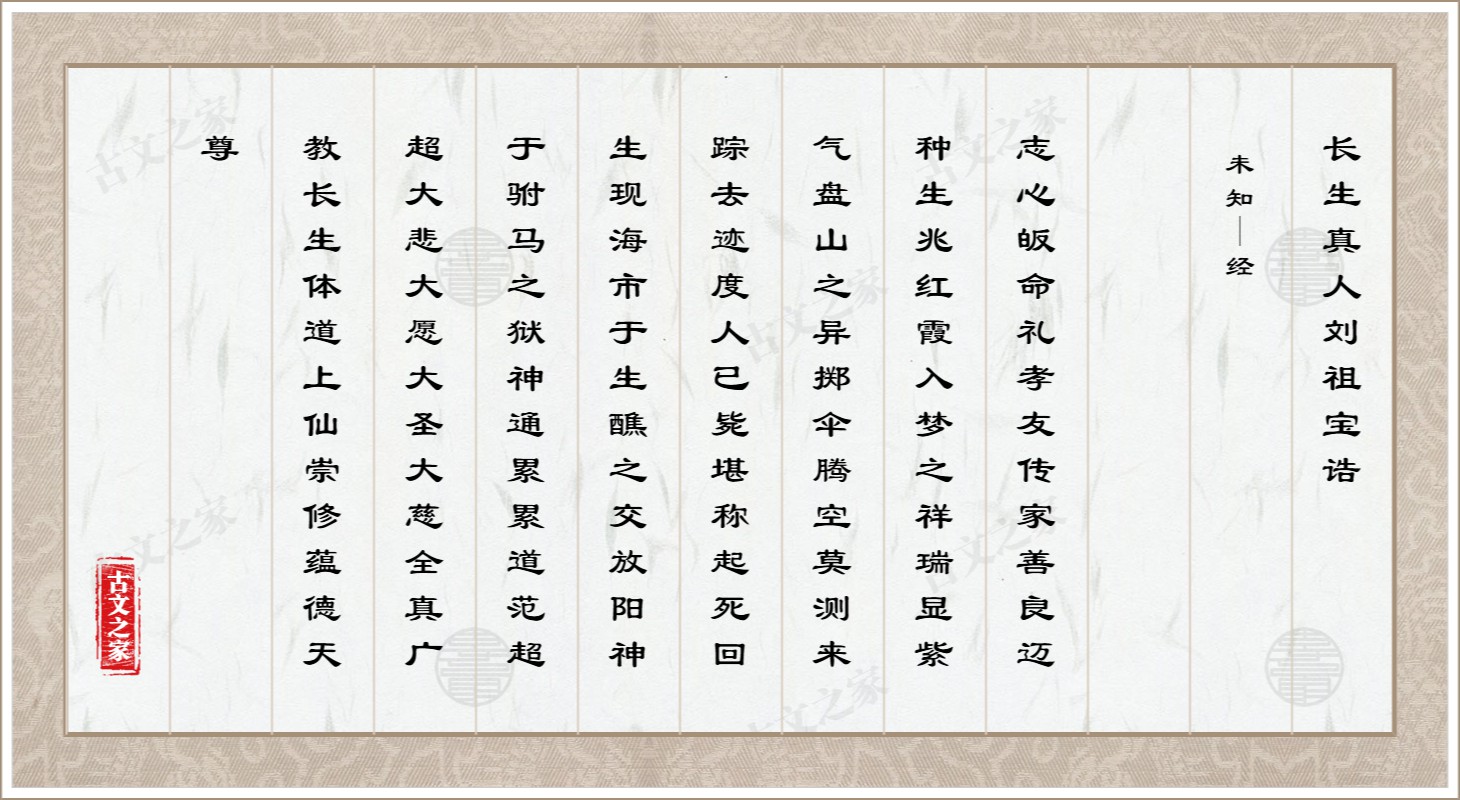 长生真人刘祖宝诰
未知｜经
志心皈命礼孝友传家善良迈
种生兆红霞入梦之祥瑞显紫
气盘山之异掷伞腾空莫测来
踪去迹度人已毙堪称起死回
生现海市于生醮之交放阳神
于驸马之狱神通累累道范超
超大悲大愿大圣大慈全真广
教长生体道上仙崇修蕴德天
尊
古文之家